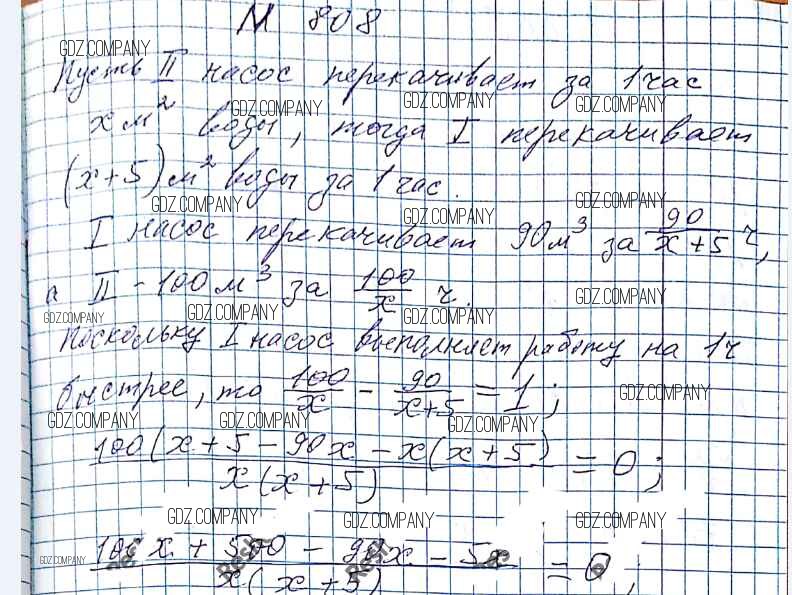 № 808
GDZ.COMPANY
Пусть II насос перекачивает за 1 час
GDZ.COMPANY GDZ.COMPANY GDZ.COMPANY
x м² воды, тогда I перекачивает
(x+5) м² воды за 1 час.
GDZ.COMPANY GDZ.COMPANY GDZ.COMPANY
I насос перекачивает 90 м³ за 90/(x+5) ч,
а II - 100 м³ за 100/x ч.
GDZ.COMPANY GDZ.COMPANY GDZ.COMPANY GDZ.COMPANY
Поскольку I насос выполняет работу на 1 ч
быстрее, то 100/x - 90/(x+5) = 1;
GDZ.COMPANY
GDZ.COMPANY GDZ.COMPANY GDZ.COMPANY
100(x+5 - 90x - x(x+5) / x(x+5) = 0;
GDZ.COMPANY GDZ.COMPANY GDZ.COMPANY
100x + 500 - 90x - 5x / x(x+5) = 0;
GDZ.COMPANY